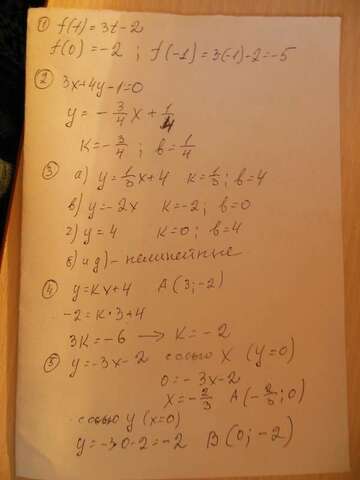 ① f(t)=3t-2
f(0)=-2 ; f(-1)=3(-1)-2=-5
② 3x+4y-1=0
y=-3/4x+1/4
K=-3/4 ; b=1/4
③ а) y=1/3x+4 K=1/3; b=4
в) y=-2x K=-2; b=0
г) y=4 K=0; b=4
б) и д) - нелинейные
④ y=Kx+4 A(3;-2)
-2=K·3+4
3K=-6 → K=-2
⑤ y=-3x-2 с осью X (y=0)
0=-3x-2
x=-2/3 A(-2/3;0)
с осью y (x=0)
y=-3·0-2=-2 B(0;-2)